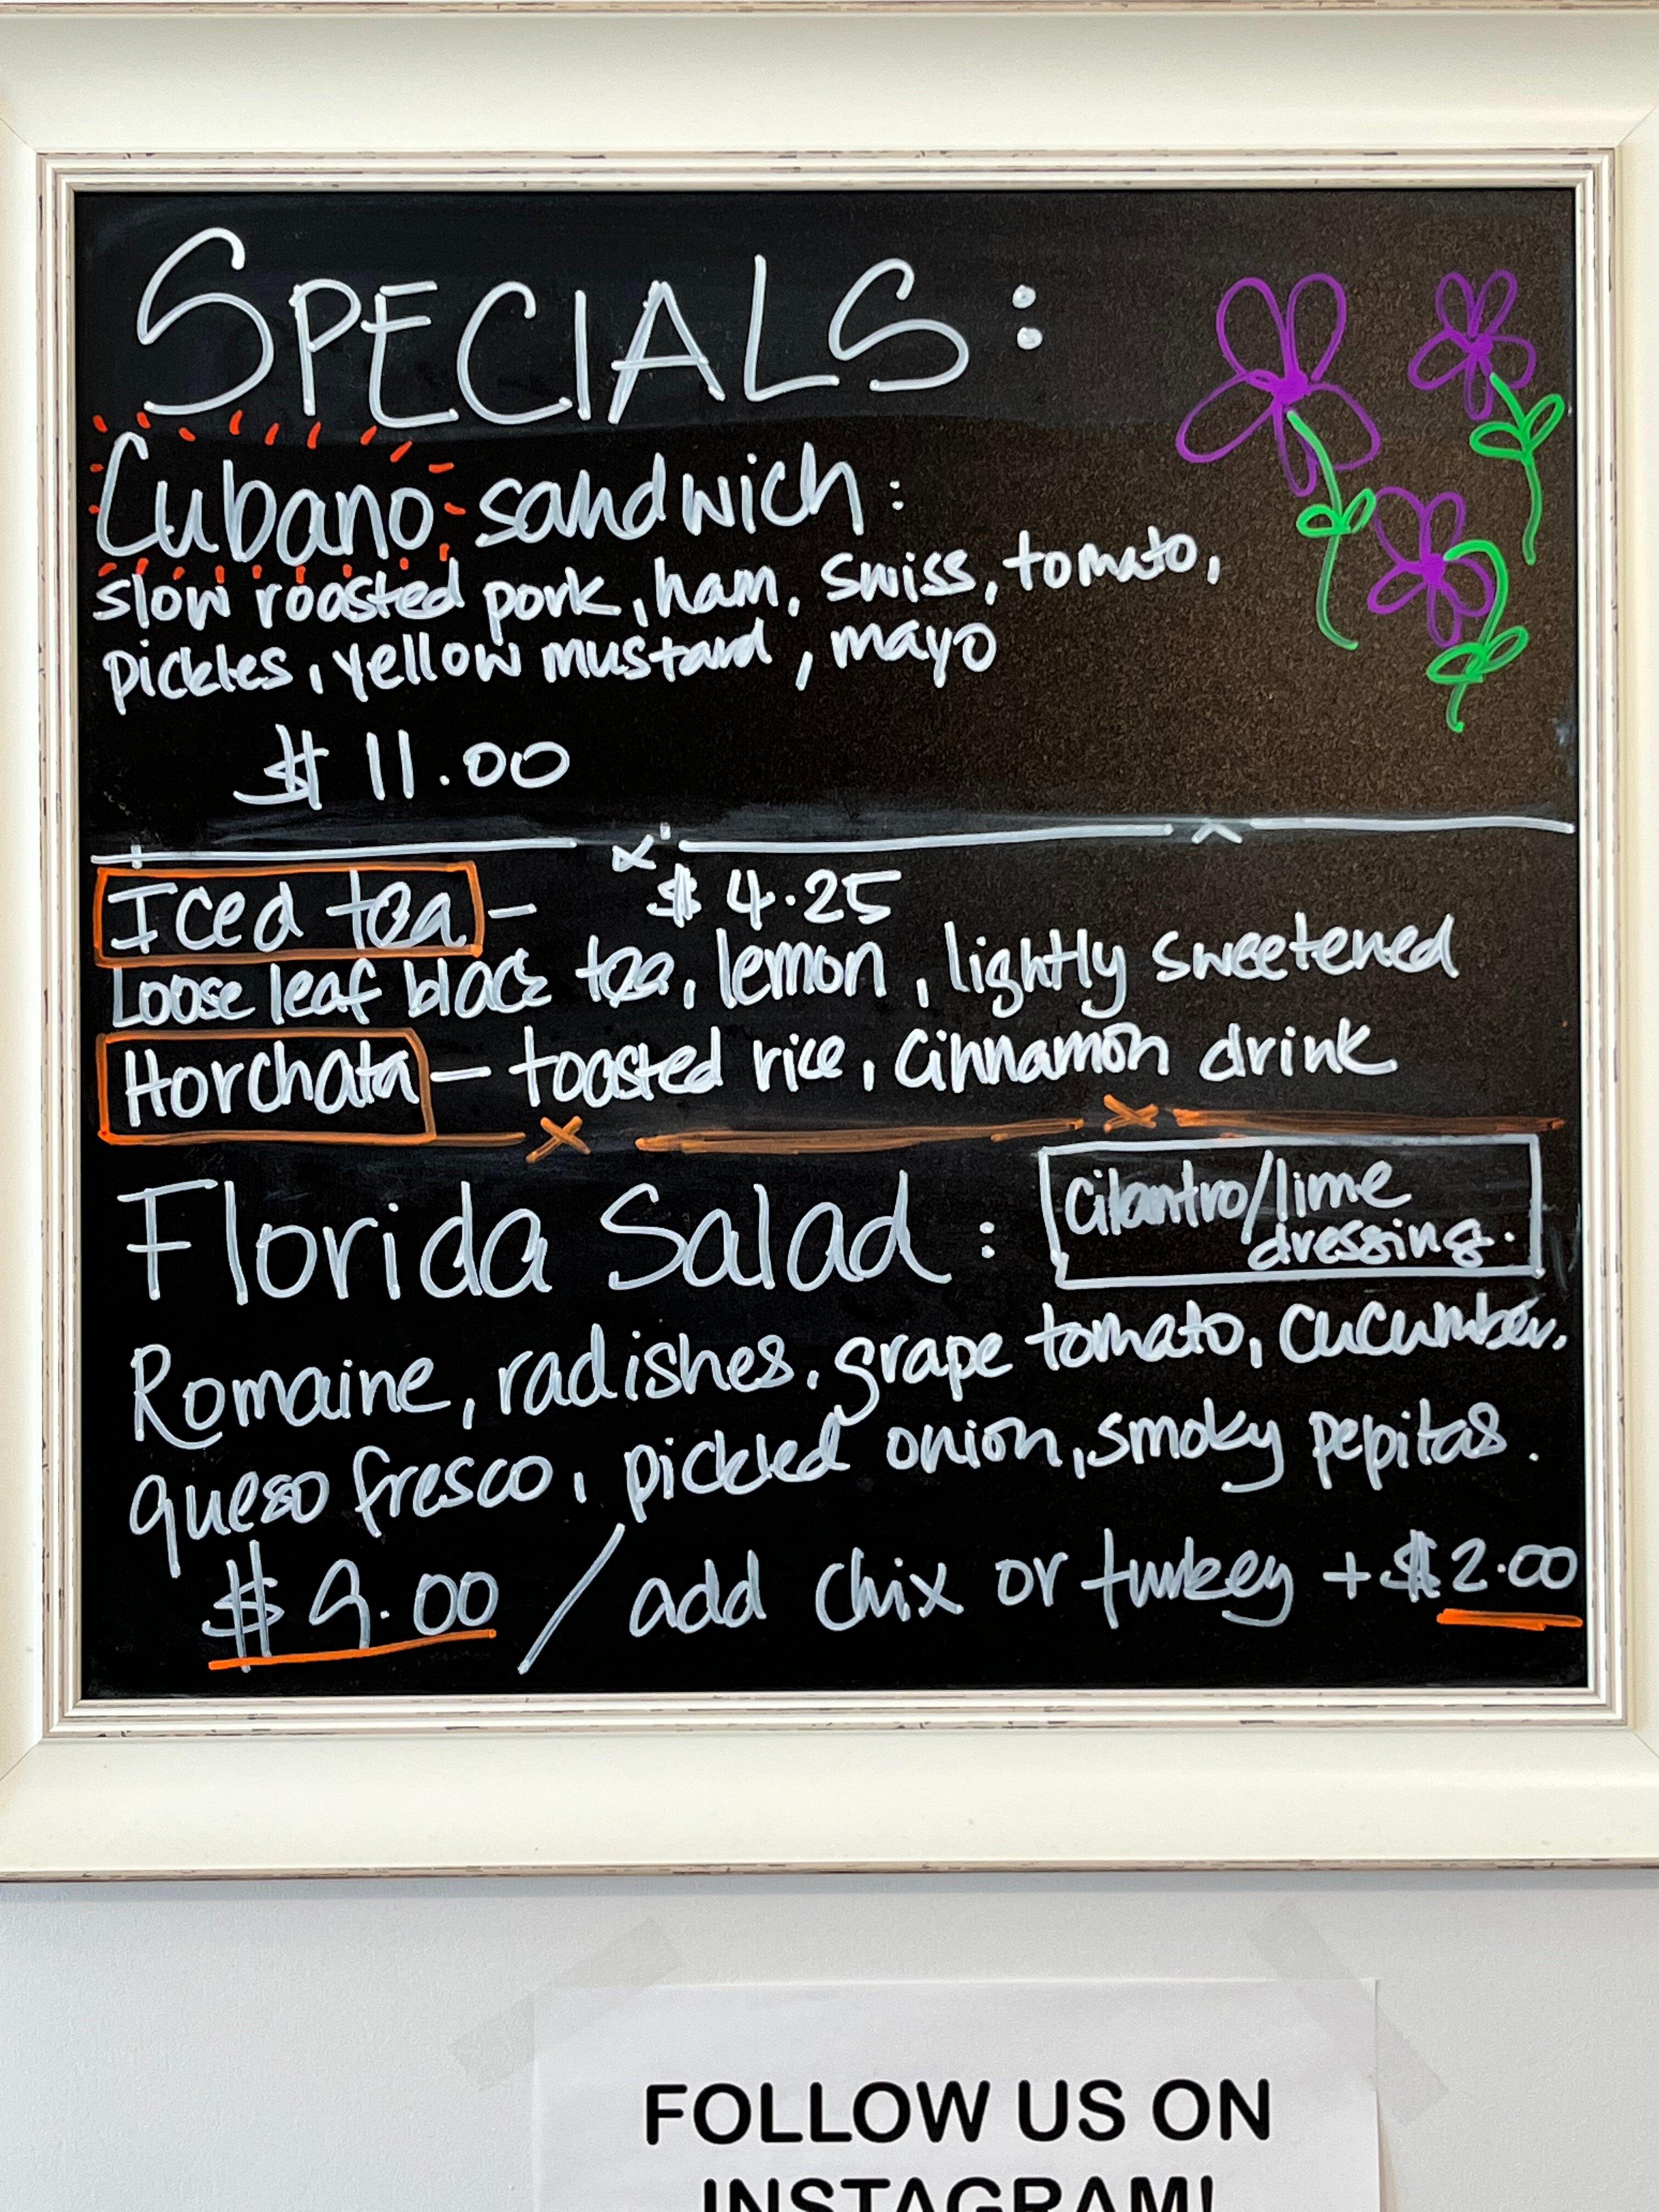 SPECIALS:
Cubano sandwich:
slow roasted pork, ham, swiss, tomato,
pickles, yellow mustard, mayo
$11.00
Iced tea - $4.25
Loose leaf black tea, lemon, lightly sweetened
Horchata - toasted rice, cinnamon drink
Florida Salad: cilantro/lime
dressing.
Romaine, radishes, grape tomato, cucumber,
queso fresco, pickled onion, smoky pepitas.
$9.00 / add chix or turkey + $2.00
FOLLOW US ON
INSTAGRAM!